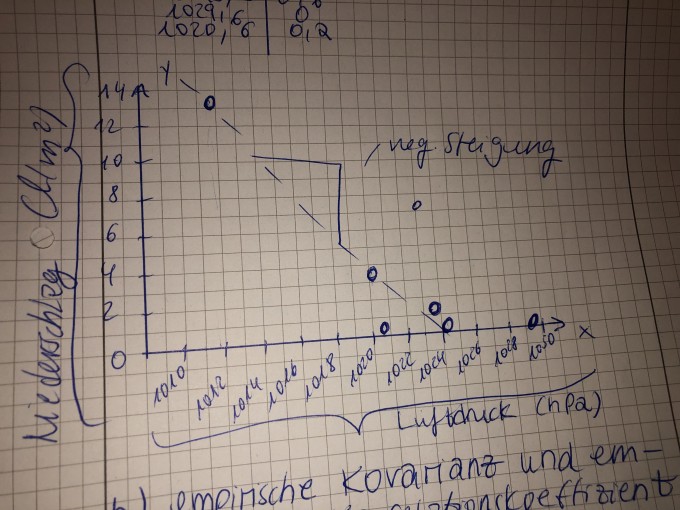 1029,6 0
1020,6 0,2
Y
14
12
10
8
6
4
2
0
Niederschlag (l/m²)
neg. Steigung
1010 1012 1014 1016 1018 1020 1022 1024 1026 1028 1030 X
Luftdruck (hPa)
b) empirische Kovarianz und em-